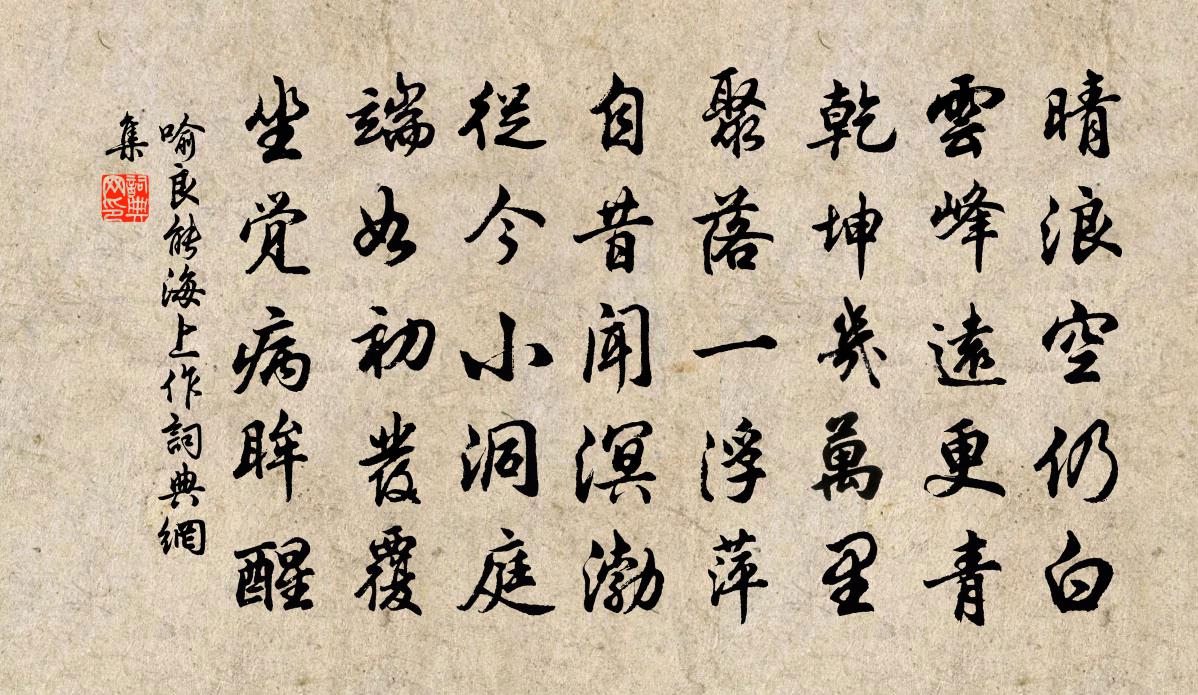 晴浪空仍白
雲峰遠更青
乾坤幾萬里
聚落一浮萍
自昔聞溟渤
從今小洞庭
端如初發覆
坐覺病眸醒
喻良能海上作詞典網
集
詞典
网印